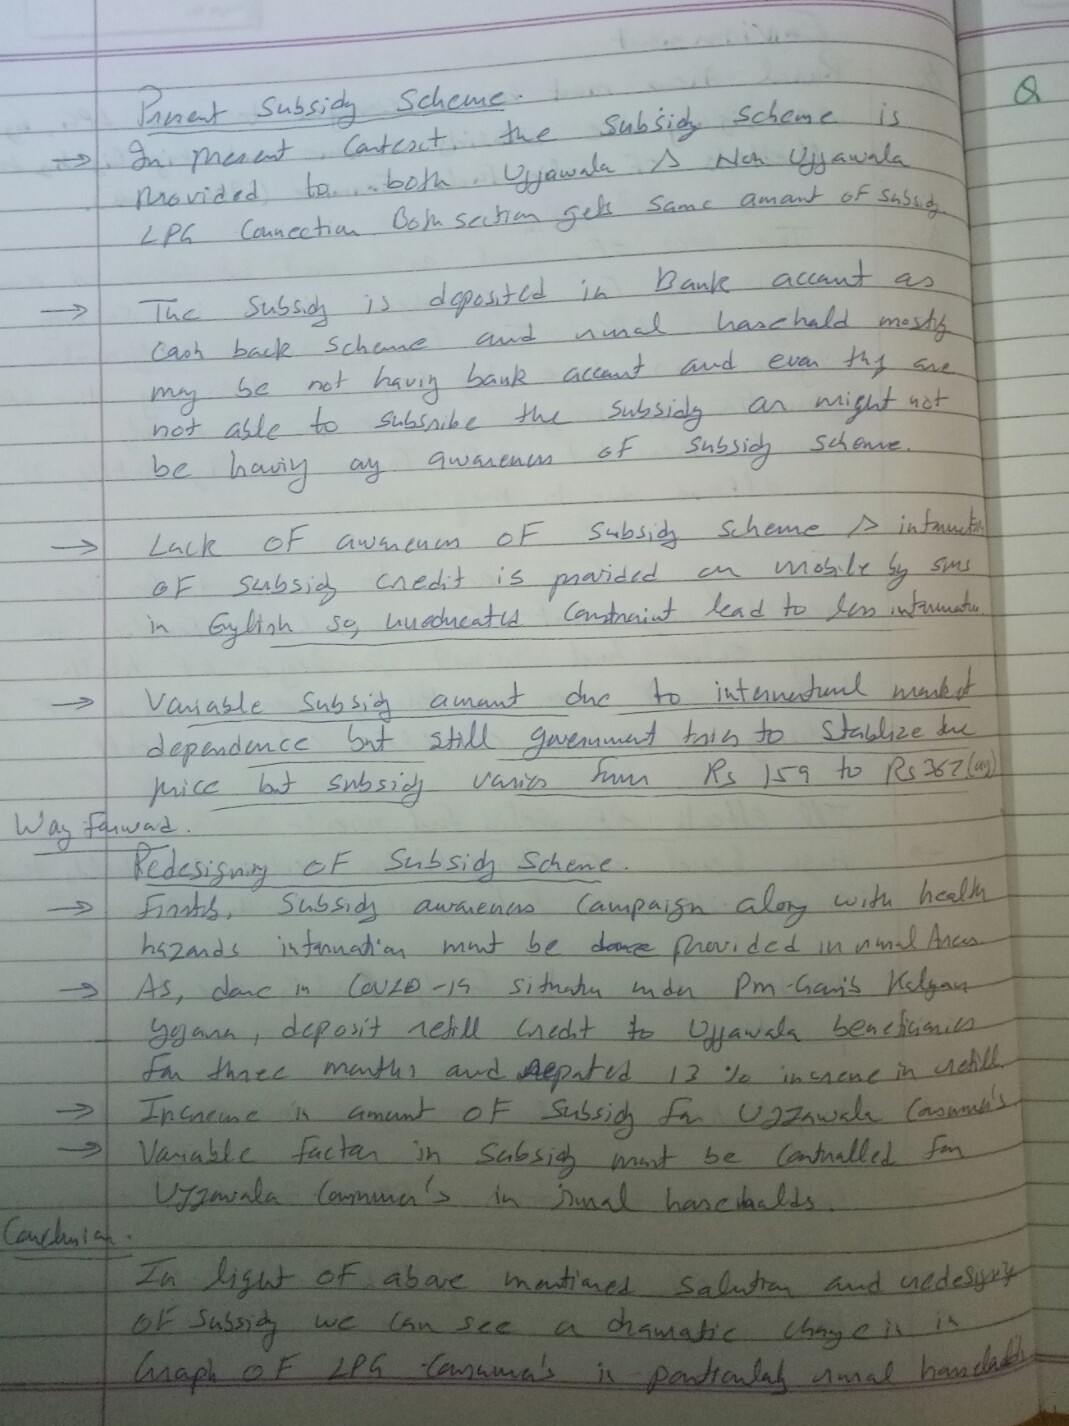 Present Subsidy Scheme.
→ In present context, the subsidy scheme is
provided to both Ujjawala & Non Ujjawala
LPG Connection Both section gets same amount of subsidy
→ The subsidy is deposited in Bank account as
cash back scheme and rural household mostly
may be not having bank account and even they are
not able to subscribe the subsidy or might not
be having any awareness of subsidy scheme.
→ Lack of awareness of subsidy scheme & information
of subsidy credit is provided on mobile by sms
in English so, uneducated constraint lead to less information
→ Variable Subsidy amount due to international market
dependence but still government tries to stablize the
price but subsidy varies from Rs 159 to Rs 367
Way forward.
Redesigning of Subsidy Scheme.
→ Firstly, Subsidy awareness Campaign along with health
hazards information must be done provided in rural Areas
→ As, done in COVID-19 situation under Pm-Garib Kalyan
Yojana, deposit refill credit to Ujjawala beneficiaries
for three months and reported 13 % increase in refill
→ Increase in amount of subsidy for Ujjawala Consumer's.
→ Variable factor in Subsidy must be controlled for
Ujjawala Consumer's in rural households.
Conclusion.
In light of above mentioned solution and redesigning
of subsidy we can see a dramatic change is in
Graph of LPG Consumer's in particularly rural households
Q